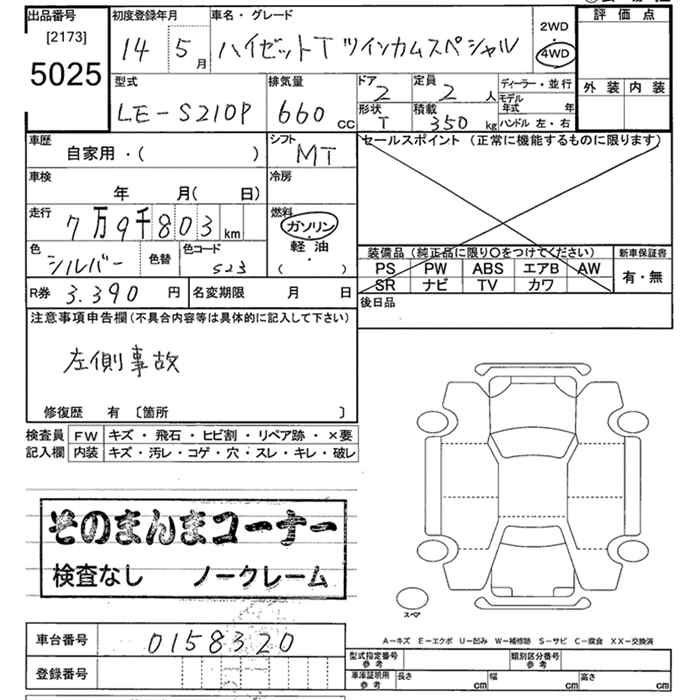 出品番号 初度登録年月 車名・グレード 評価点
[2173] 14 5月 ハイゼットT ツインカムスペシャル 2WD
5025 4WD
外装 内装
型式 排気量 ドア 定員 ディーラー・並行
LE-S210P 660 cc 2 2人 モデル年式 年
形状 積載 ハンドル 左・右
T 350kg
車歴 シフト セールスポイント (正常に機能するものに限ります)
自家用・( ) MT
車検 冷房
年 月( 日)
走行 燃料
7万9千803km ガソリン
軽油
( )
色 色替 色コード 装備品 (純正品に限り○をつけてください) 新車保証書
シルバー 523 PS PW ABS エアB AW 有・無
SR ナビ TV カワ
R券 3.390円 名変期限 月 日 後日品
注意事項申告欄(不具合内容等は具体的に記入して下さい)
左側事故
修復歴 有 〔箇所 〕
検査員 FW キズ・飛石・ヒビ割・リペア跡・×要
記入欄 内装 キズ・汚レ・コゲ・穴・スレ・キレ・破レ
そのまんまコーナー
検査なし ノークレーム
スペア
車台番号 0158320
A-キズ E-エクボ U-凹み W-補修跡 S-サビ C-腐食 XX-交換済
登録番号 型式指定番号 参考 類別区分番号 参考
車庫証明用 参考 長さ cm 幅 cm 高さ cm